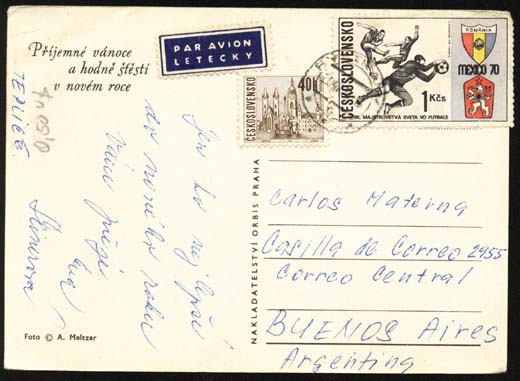 Příjemné vánoce
a hodně štěstí
v novém roce
PAR AVION
LETECKY
ČESKOSLOVENSKO
40h
ČESKOSLOVENSKO
1 Kčs
MAJSTROVSTVÁ SVETA VO FUTBALE
ROMÂNIA
MEXICO 70
Jen to nejlepší
do nového roku
Vám přeje
NAKLADATELSTVÍ ORBIS PRAHA
Carlos Materna
Casilla de Correo 2955
Correo Central
BUENOS Aires
Argentina
Foto © A. Meltzer